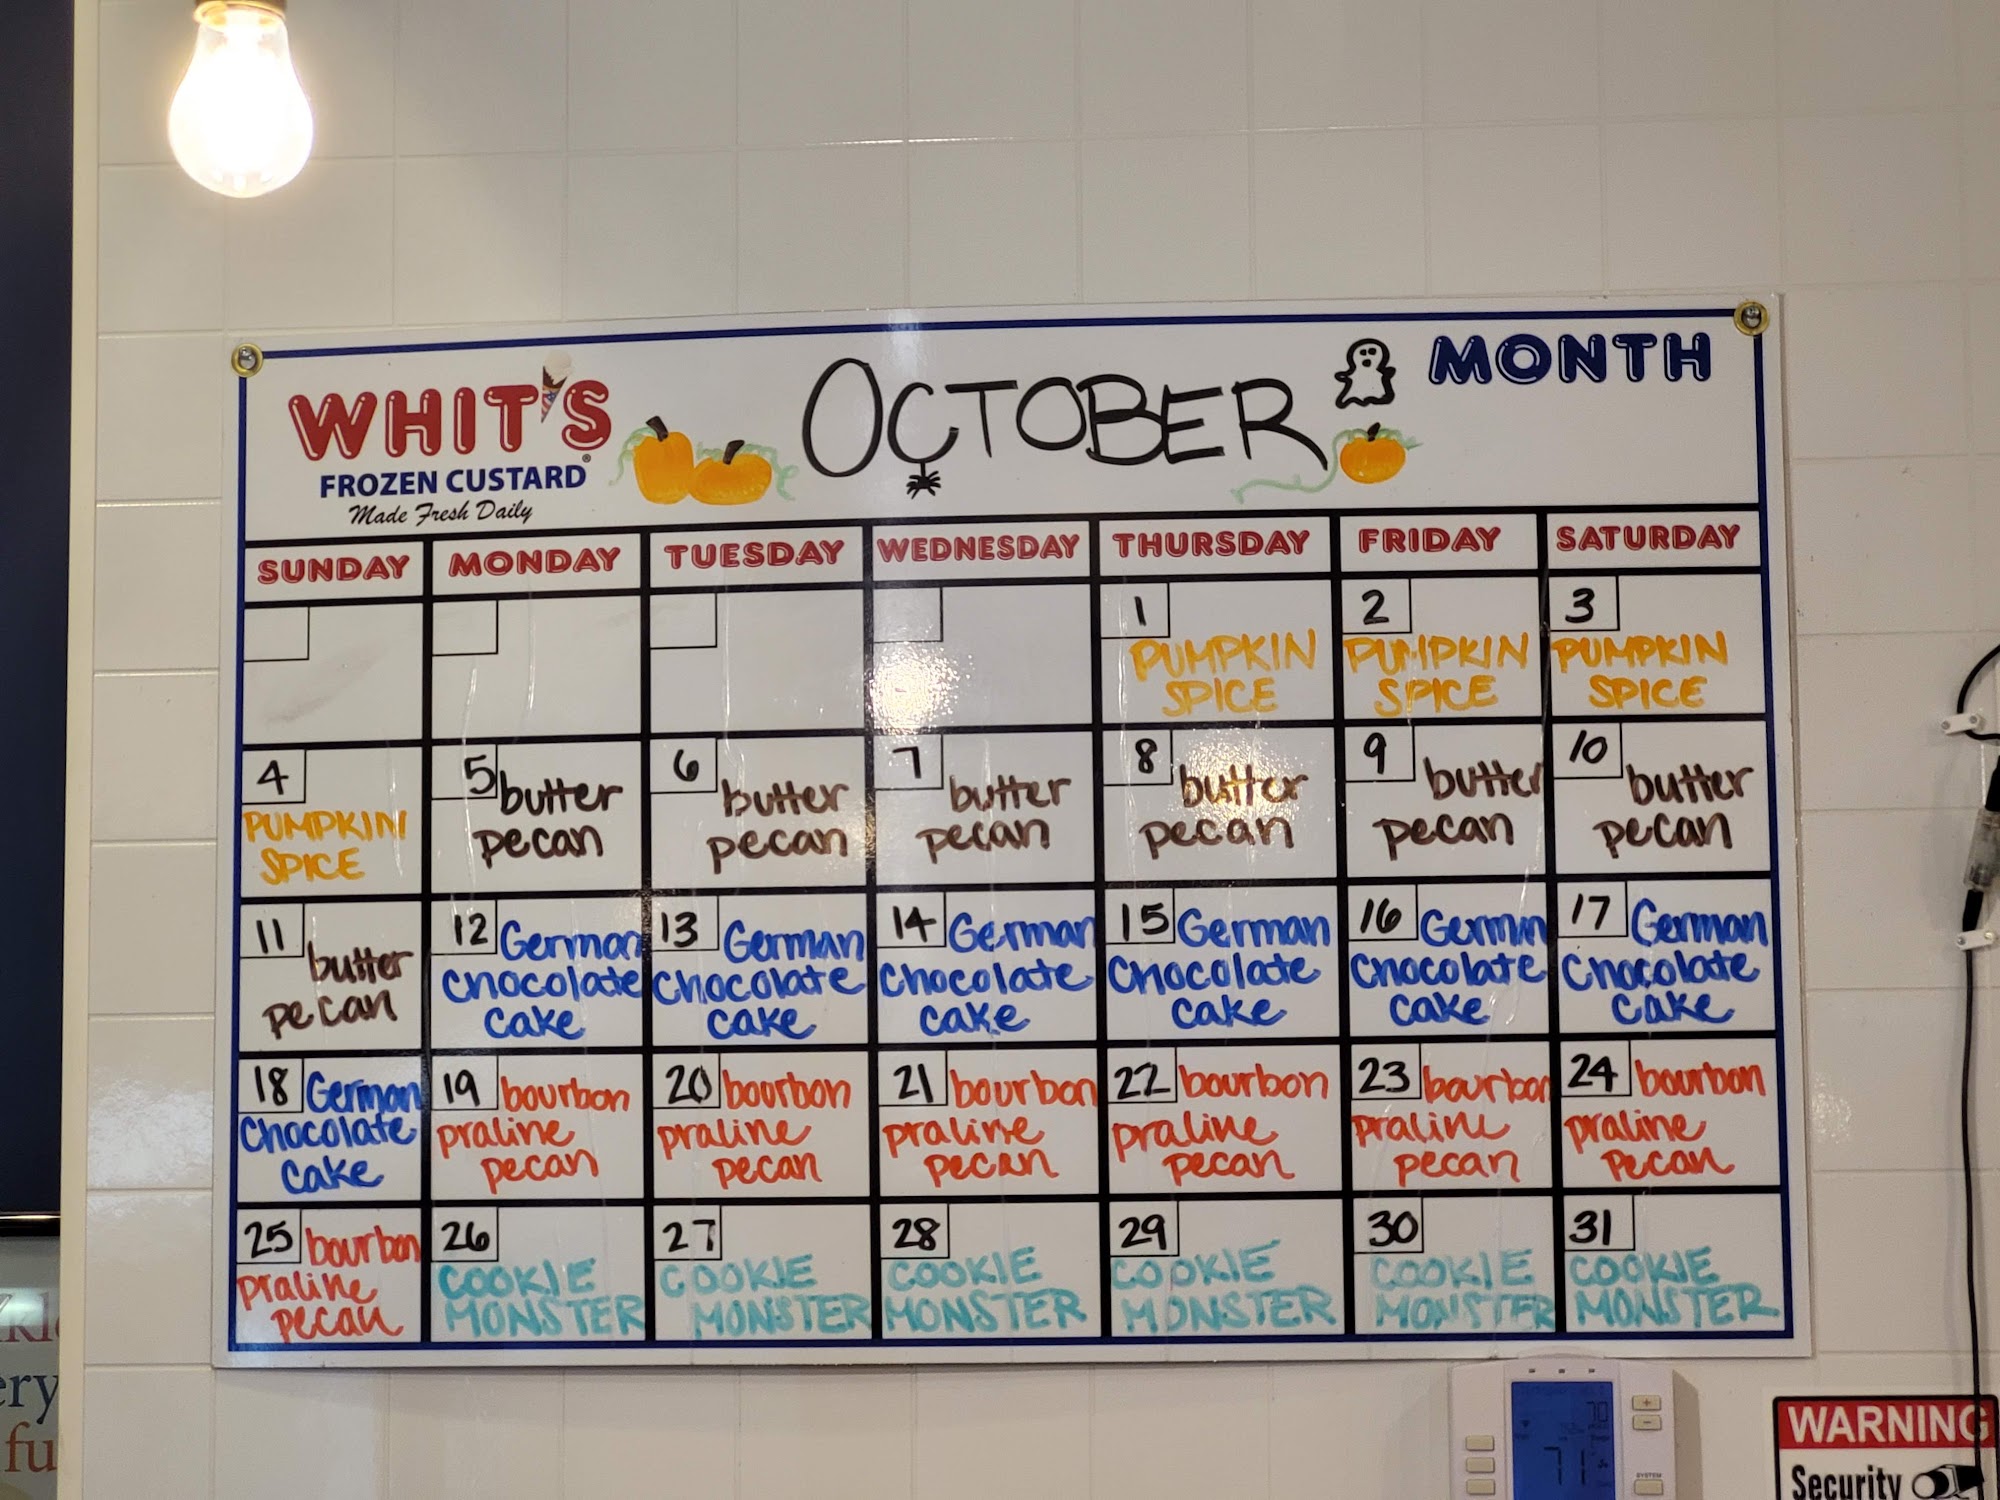 WHIT'S
FROZEN CUSTARD®
Made Fresh Daily
OCTOBER
MONTH
SUNDAY MONDAY TUESDAY WEDNESDAY THURSDAY FRIDAY SATURDAY
1 2 3
PUMPKIN PUMPKIN PUMPKIN
SPICE SPICE SPICE
4 5 butter 6 butter 7 butter 8 butter 9 butter 10 butter
PUMPKIN pecan pecan pecan pecan pecan pecan
SPICE
11 butter 12 German 13 German 14 German 15 German 16 Germn 17 German
pecan Chocolate Chocolate Chocolate Chocolate Chocolate Chocolate
Cake Cake Cake Cake Cake Cake
18 German 19 bourbon 20 bourbon 21 bourbon 22 bourbon 23 bourbon 24 bourbon
Chocolate praline praline praline praline praline praline
Cake pecan pecan pecan pecan pecan pecan
25 bourbon 26 27 28 29 30 31
praline COOKIE COOKIE COOKIE COOKIE COOKIE COOKIE
pecan MONSTER MONSTER MONSTER MONSTER MONSTER MONSTER
70
71
SYSTEM
WARNING
Security
ery
fu